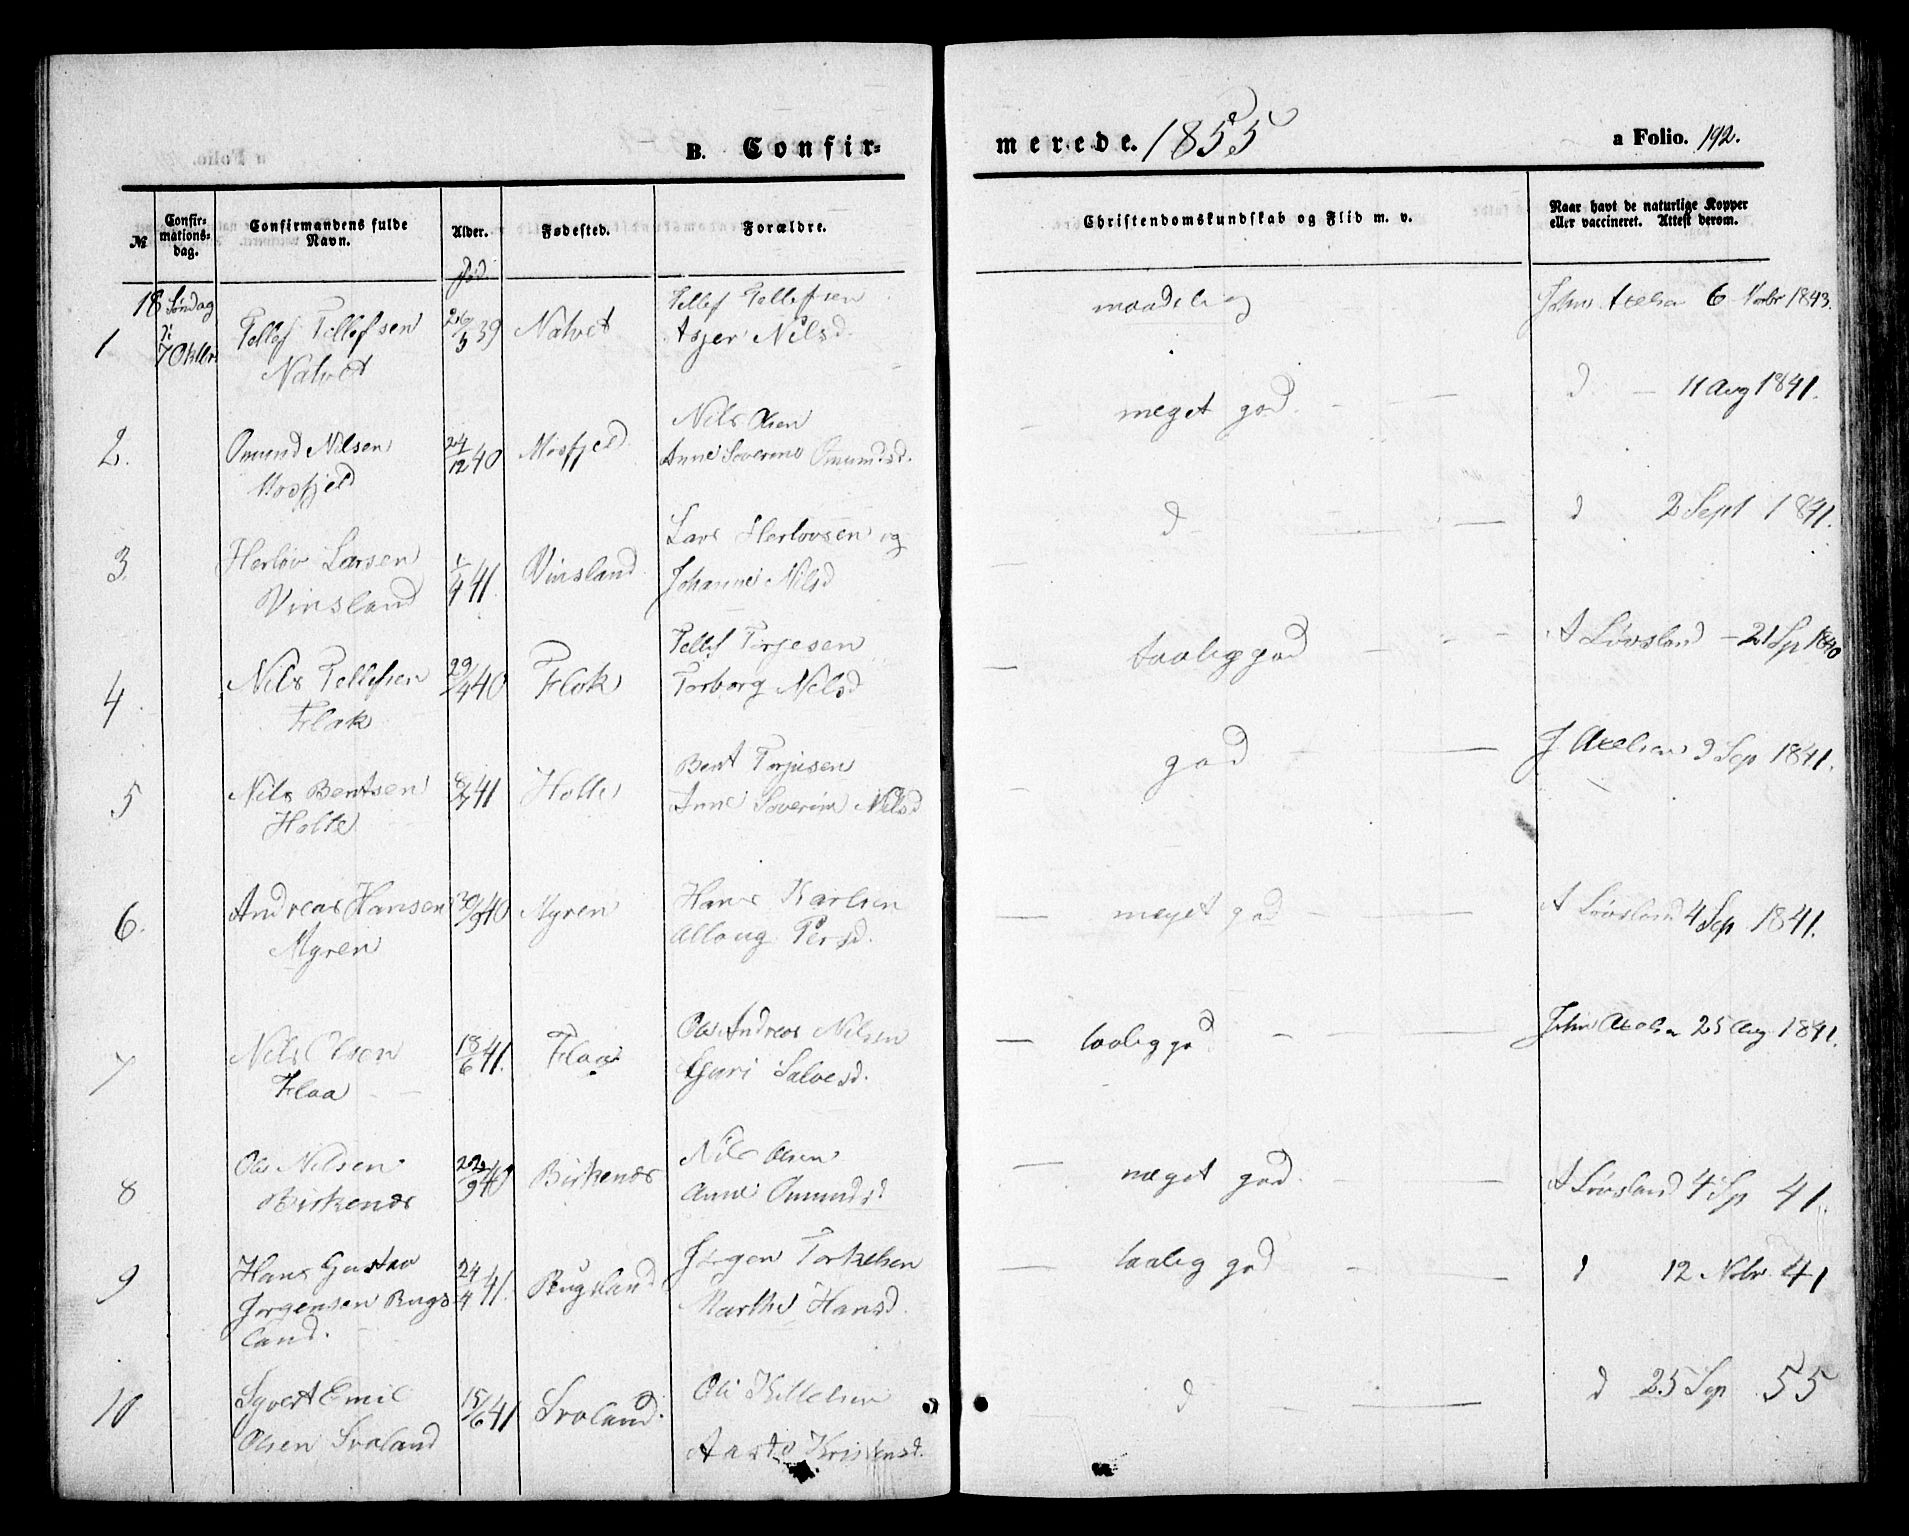 B. Confir-
merede. 1855
a Folio. 192.
№
Confir-
mations-
dag.
Confirmandens fulde
Navn.
Alder.
Fødested.
Forældre.
Christendomskundskab og Flid m. v.
Naar havt de naturlige Kopper
eller vaccineret. Attest derom.
fød
18 Søndag
7 Oktbr
1 Tellef Tellefsen
Natvet
26/5 39 Natvet
Tellef Tellefsen
Asjer Nilsd.
maadelig
John Axelsen 6 Novbr 1843.
2. Omund Nilsen
Mosfjeld
24/12 40 Mosfjeld
Nils Olsen
Anne Severine Omundsd.
meget god
d - 11 Aug 1841.
3. Herlov Larsen
Vinsland
1/4 41. Vinsland
Lars Herlovsen og
Johanne Nilsd
d
d 2 Sept 1841.
4. Nils Tellefsen
Flak
29/4 40 Flak
Tellef Terjesen
Torborg Nilsd
taalig god
A Løvsland - 21 Sp 1840
5 Nils Bentsen
Holte
8/7 41 Holte
Bent Terjusen
Anne Severine Nilsd
god
J Axelsen 9 Sep 1841.
6. Andreas Hansen
Myren
30/9 40 Myren
Hans Karlsen
Allaug Persd.
meget god
A Løvsland 4 Sep 1841.
7 Nils Olsen
Flaa
18/6 41. Flaa
Ole Andreas Nilsen
Guri Salvesd.
taalig god
John Axelsen 25 Aug 1841.
8 Ole Nilsen
Birkenæs
22/9 40 Birkenæs
Nils Olsen
Anne Omundsd
meget god.
A Løvsland 4 Sp 41.
9 Hans Gustav
Jørgensen Rugs
land.
24/4 41. Rugsland
Jørgen Torkelsen
Marthe Hansd.
taalig god
d 12 Nobr. 41
10 Syvert Emil
Olsen Svaland
15/6 41 Svaland.
Ole Kittelsen
Aaste Kristensd.
d
d 25 Sep 55